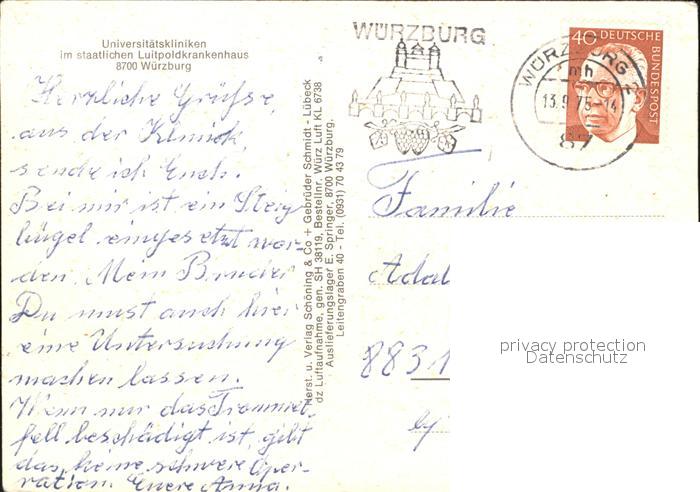 Universitätskliniken
im staatlichen Luitpoldkrankenhaus
8700 Würzburg
Herzliche Grüße,
aus der Klinick,
sende ich Euch.
Bei mir ist ein Steig
bügel eingesetzt wor-
den. Mein Bruder
Du must auch hier
eine Untersuchung
machen lassen.
Wenn nur das Trommel-
fell beschädigt ist, gibt
das keine schwere Oper-
ration. Euere Anna.
Herst. u. Verlag Schöning & Co + Gebrüder Schmidt - Lübeck
dz Luftaufnahme, gen. SH 38119. Bestellnr. Würz Luft KL 6738
Auslieferungslager E. Springer, 8700 Würzburg,
Leitengraben 40 - Tel. (0931) 70 43 79
WÜRZBURG
WÜRZBURG 1
mh
13.9.75-14
87
40 DEUTSCHE
BUNDESPOST
Familie
Adal
8831
privacy protection
Datenschutz